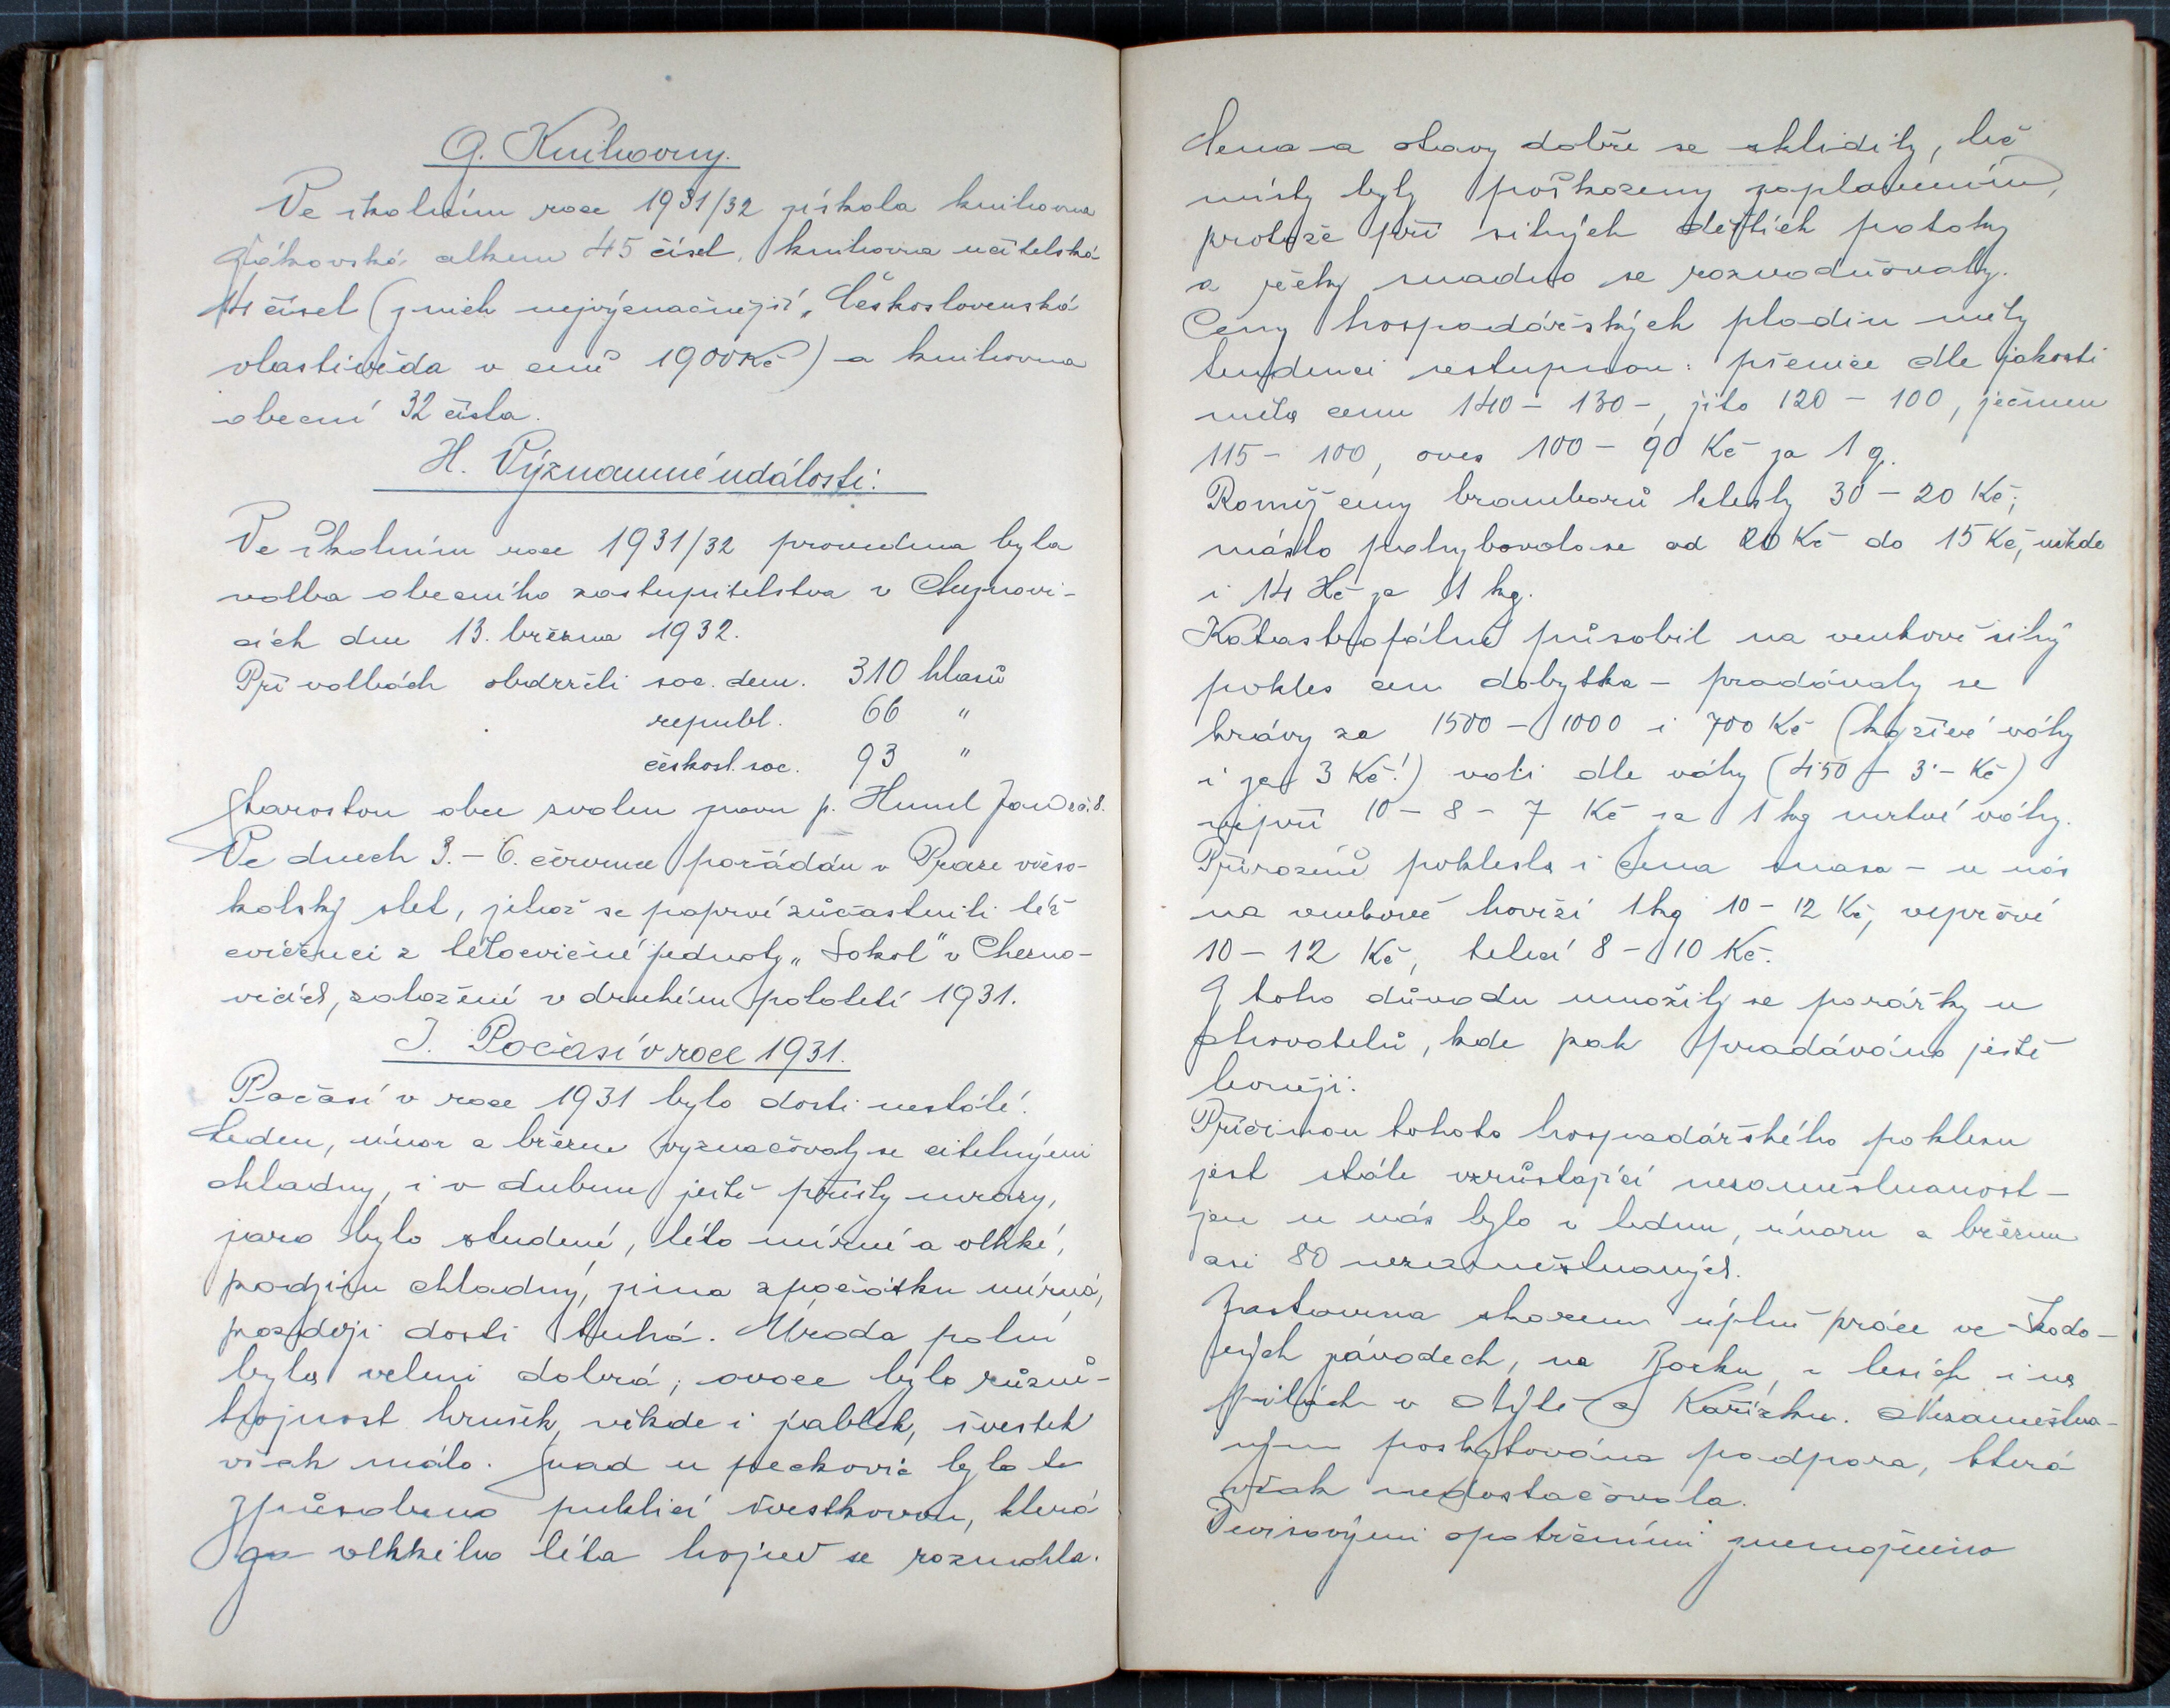 G. Knihovny.
Ve školním roce 1931/32 získala knihovna
žákovská celkem 45 čísel, knihovna učitelská
14 čísel (z nich nejvýznačnější „Československá
vlastivěda v ceně 1900 Kč) a knihovna
obecní 32 čísla.
H. Významné události.
Ve školním roce 1931/32 provedena byla
volba obecního zastupitelstva v Cheznovi-
cích dne 13. března 1932.
Při volbách obdrželi soc. dem. 310 hlasů
republ. 66 "
českosl. soc. 93 "
Starostou obce zvolen znovu p. Huml Jan
Ve dnech 3. – 6. července pořádán v Praze všeso-
kolský slet, jehož se poprvé zúčastnili též
cvičenci z tělocvičné jednoty „Sokol" v Chezno-
vicích, založené v druhém pololetí 1931.
I. Počasí v roce 1931.
Počasí v roce 1931 bylo dosti nestálé.
Leden, únor a březen vyznačovaly se citelnými
chladny, i v dubnu ještě přišly mrazy,
jaro bylo studené, léto mírné a vlhké,
podzim chladný, zima zpočátku mírná,
později dosti tuhá. Úroda polní
byla velmi dobrá, ovoce bylo různě –
hojnost hrušek, někde i jablek, švestek
však málo. Snad u peckovic bylo to
způsobeno puklicí švestkovou, která
za vlhkého léta hojně se rozmohla.
Sena a otavy dobře se sklidily, leč
místy byly poškozeny zaplavením,
protože při silných deštích potoky
a říčky snadno se rozvodňovaly.
Ceny hospodářských plodin měly
tendenci sestupnou: pšenice dle jakosti
měla cenu 140 – 130 –, žito 120 – 100, ječmen
115 – 100, oves 100 – 90 Kč za 1 q.
Rovněž ceny bramborů klesly 30 – 20 Kč;
máslo pohybovalo se od 20 Kč do 15 Kč, někde
i 14 Kč za 1 kg.
Katastrofálně působil na venkově silný
pokles cen dobytka – prodávaly se
krávy za 1500 – 1000 i 700 Kč (kg živé váhy
i za 3 Kč!) voli dle váhy (4·50 – 3·– Kč)
vepři 10 – 8 – 7 Kč za 1 kg mrtvé váhy.
Přirozeně poklesla i cena masa – u nás
na venkově hovězí 1 kg 10 – 12 Kč, vepřové
10 – 12 Kč, telecí 8 – 10 Kč.
Z toho důvodu množily se porážky u
chovatelů, kde pak prodáváno ještě
levněji.
Příčinou tohoto hospodářského poklesu
jest stále vzrůstající nezaměstnanost –
jen u nás bylo v lednu, únoru a březnu
asi 80 nezaměstnaných.
Zastavena skorem úplně práce ve Škodo-
vých závodech, na Borku, v lesích i na
pilách v Mýtě a Kařízku. Nezaměstna-
ným poskytována podpora, která
však nedostačovala.
Devisovými opatřeními znemožněno